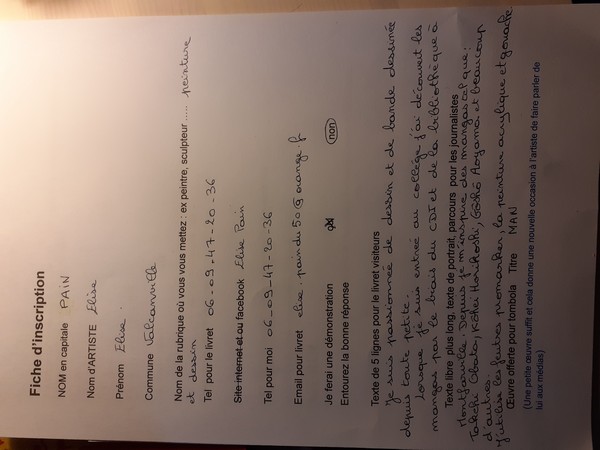 Fiche d'inscription
NOM en capitale PAIN
Nom d'ARTISTE Elise
Prénom Elise.
Commune Valcanville
Nom de la rubrique où vous vous mettez : ex peintre, sculpteur ..... peinture
et dessin
Tel pour le livret 06-09-47-20-36
Site internet et ou facebook Elise Pain
Tel pour moi 06-09-47-20-36
Email pour livret elise.paindu50@orange.fr
Je ferai une démonstration oui non
Entourez la bonne réponse
Texte de 5 lignes pour le livret visiteurs
Je suis passionnée de dessin et de bande dessinée
depuis toute petite.
Lorsque je suis entrée au collège j'ai découvert les
mangas par le biais du CDI et de la bibliothèque à
Texte libre plus long, texte de portrait, parcours pour les journalistes
Montfarville. Depuis je m'inspire des mangas tel que:
Takehi Obata, Kōhei Horikoshi, Gōshō Aoyama et beaucoup
d'autres.
J'utilise les feutres promarker, la peinture acrylique et gouache.
Œuvre offerte pour tombola Titre MAN
(Une petite œuvre suffit et cela donne une nouvelle occasion à l'artiste de faire parler de
lui aux médias)